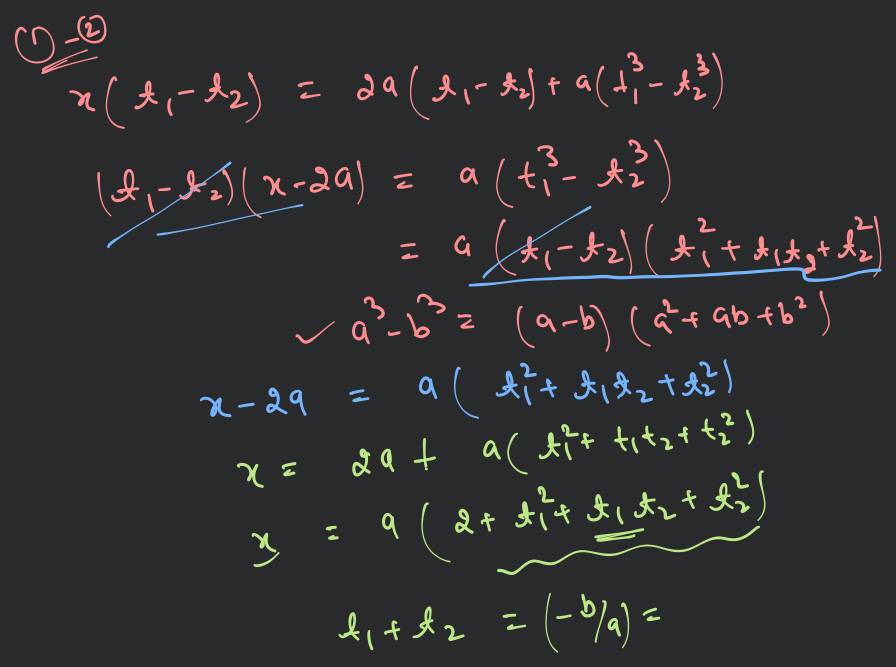 ① - ②
x(t₁ - t₂) = 2a(t₁ - t₂) + a(t₁³ - t₂³)
(t₁ - t₂)(x - 2a) = a(t₁³ - t₂³)
= a(t₁ - t₂)(t₁² + t₁t₂ + t₂²)
✓ a³ - b³ = (a - b)(a² + ab + b²)
x - 2a = a(t₁² + t₁t₂ + t₂²)
x = 2a + a(t₁² + t₁t₂ + t₂²)
x = a(2 + t₁² + t₁t₂ + t₂²)
t₁ + t₂ = (-b/a) =